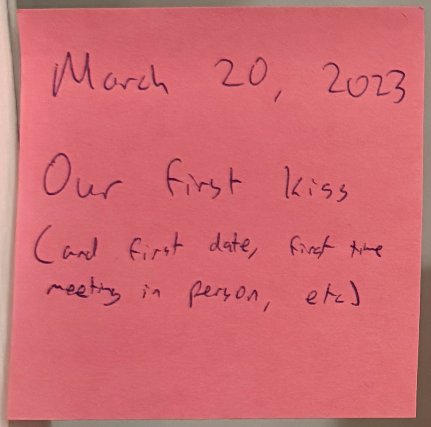 March 20, 2023
Our first kiss
(and first date, first time
meeting in person, etc)